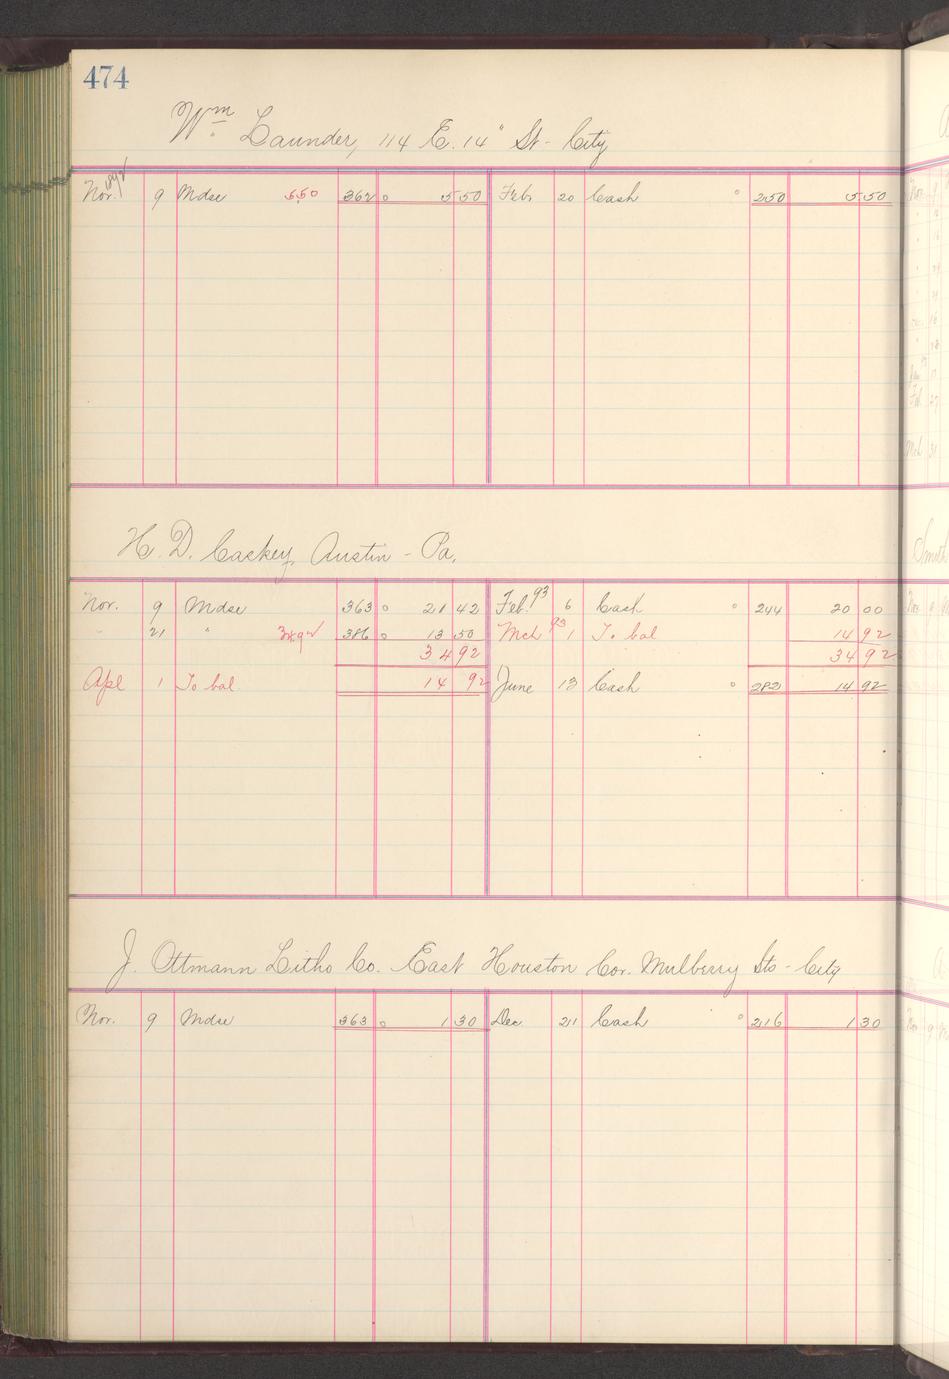 474
Wm Launder, 114 E. 14" St - City
1892
Nov. 9 Mdse 5.50 362 0 5 50 Feb 20 Cash 0 250 5 50
H. D. Caskey, Austin - Pa.
Nov. 9 Mdse 363 0 21 42 Feb. 93 6 Cash 0 244 20 00
" 21 " 34.92 386 0 13 50 Mch 93 1 To bal 14 92
34 92 34 92
Apl 1 To bal 14 92 June 13 Cash 0 14 92
J. Ottmann Litho Co. East Houston Cor. Mulberry Sts - City
Nov. 9 Mdse 363 0 1 30 Dec. 21 Cash 0 216 1 30